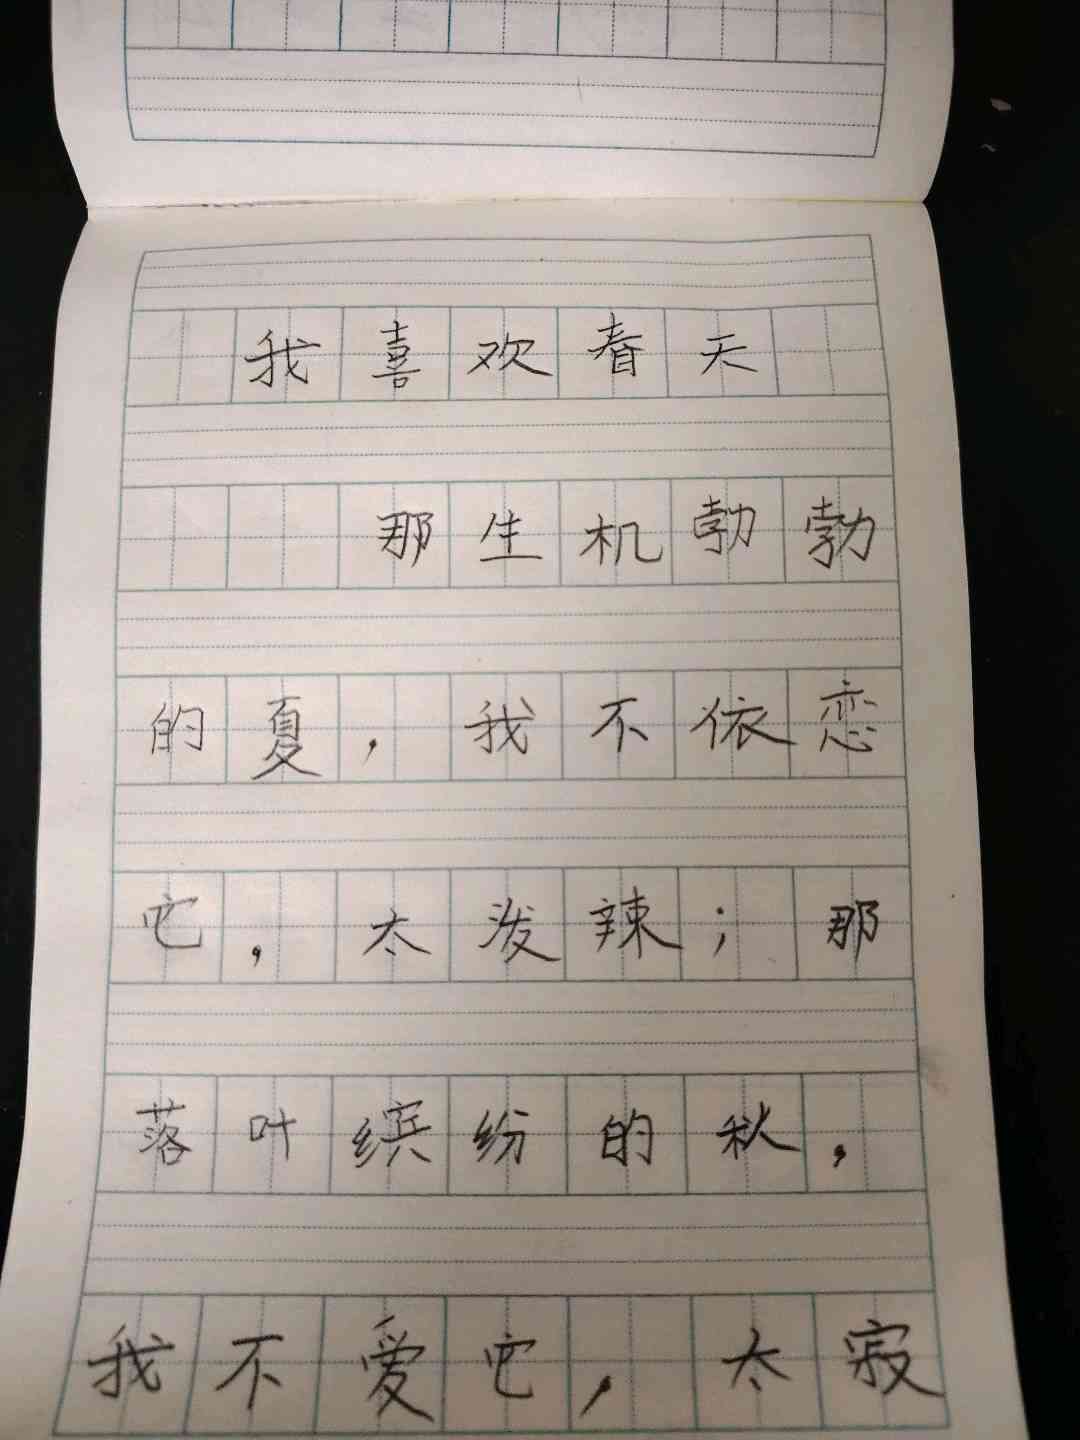 我喜欢春天
那生机勃勃
的夏，我不依恋
它，太泼辣；那
落叶缤纷的秋，
我不爱它，太寂